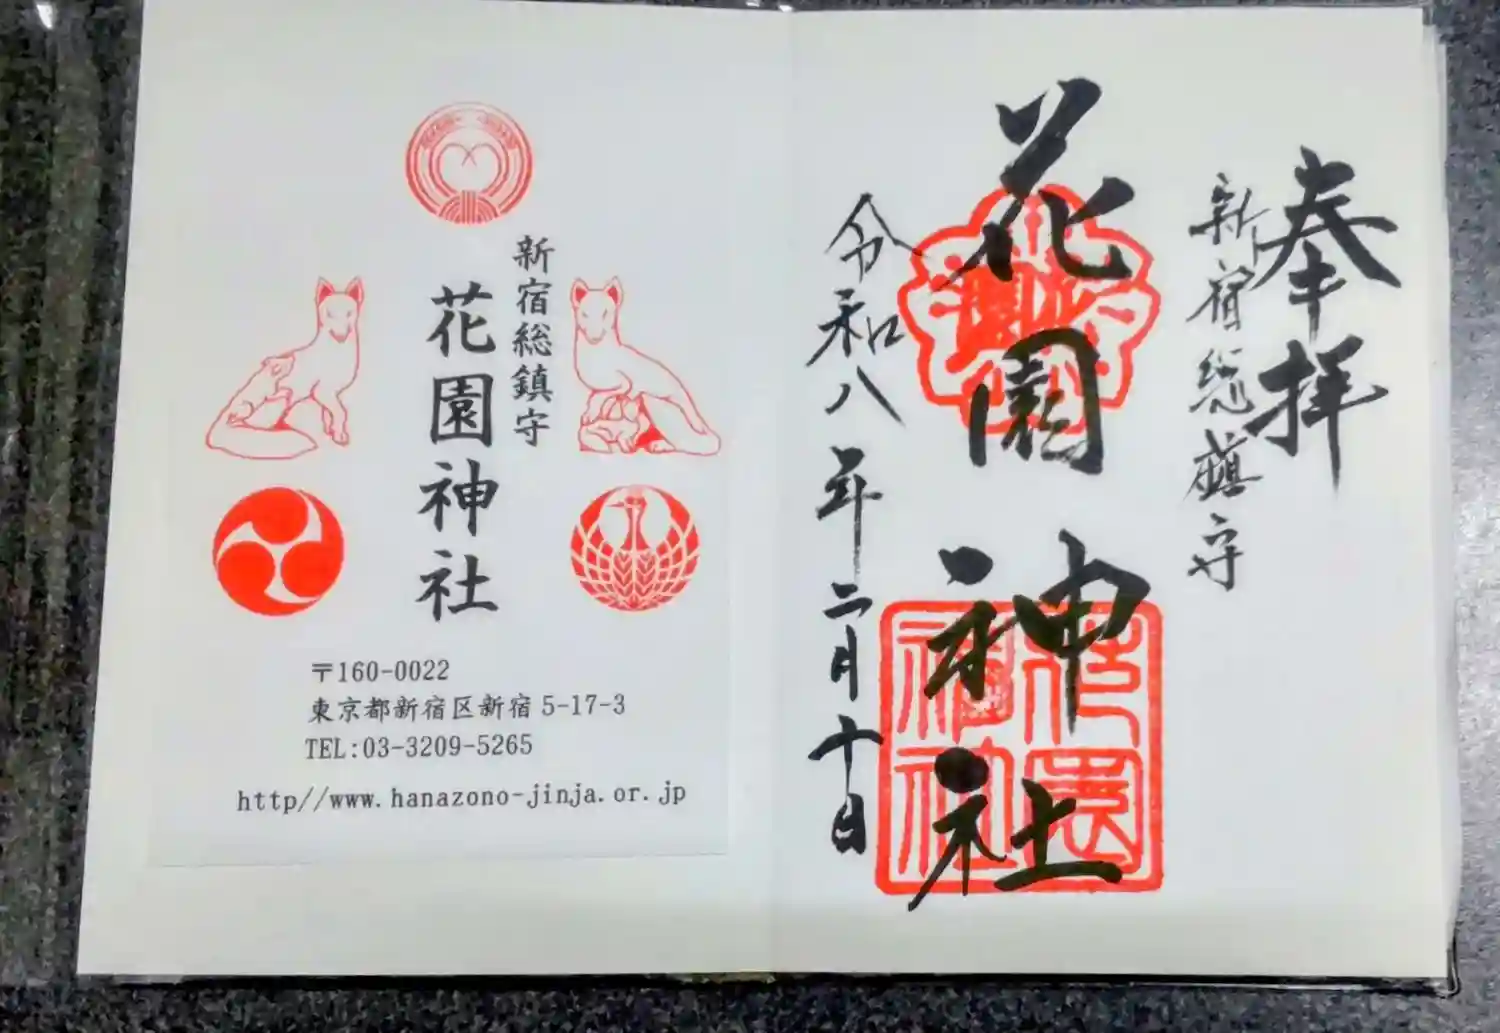 奉拝
新宿総鎮守
花園神社
令和八年二月十日
新宿総鎮守
花園神社
〒160-0022
東京都新宿区新宿5-17-3
TEL:03-3209-5265
http//www.hanazono-jinja.or.jp
花園
神社